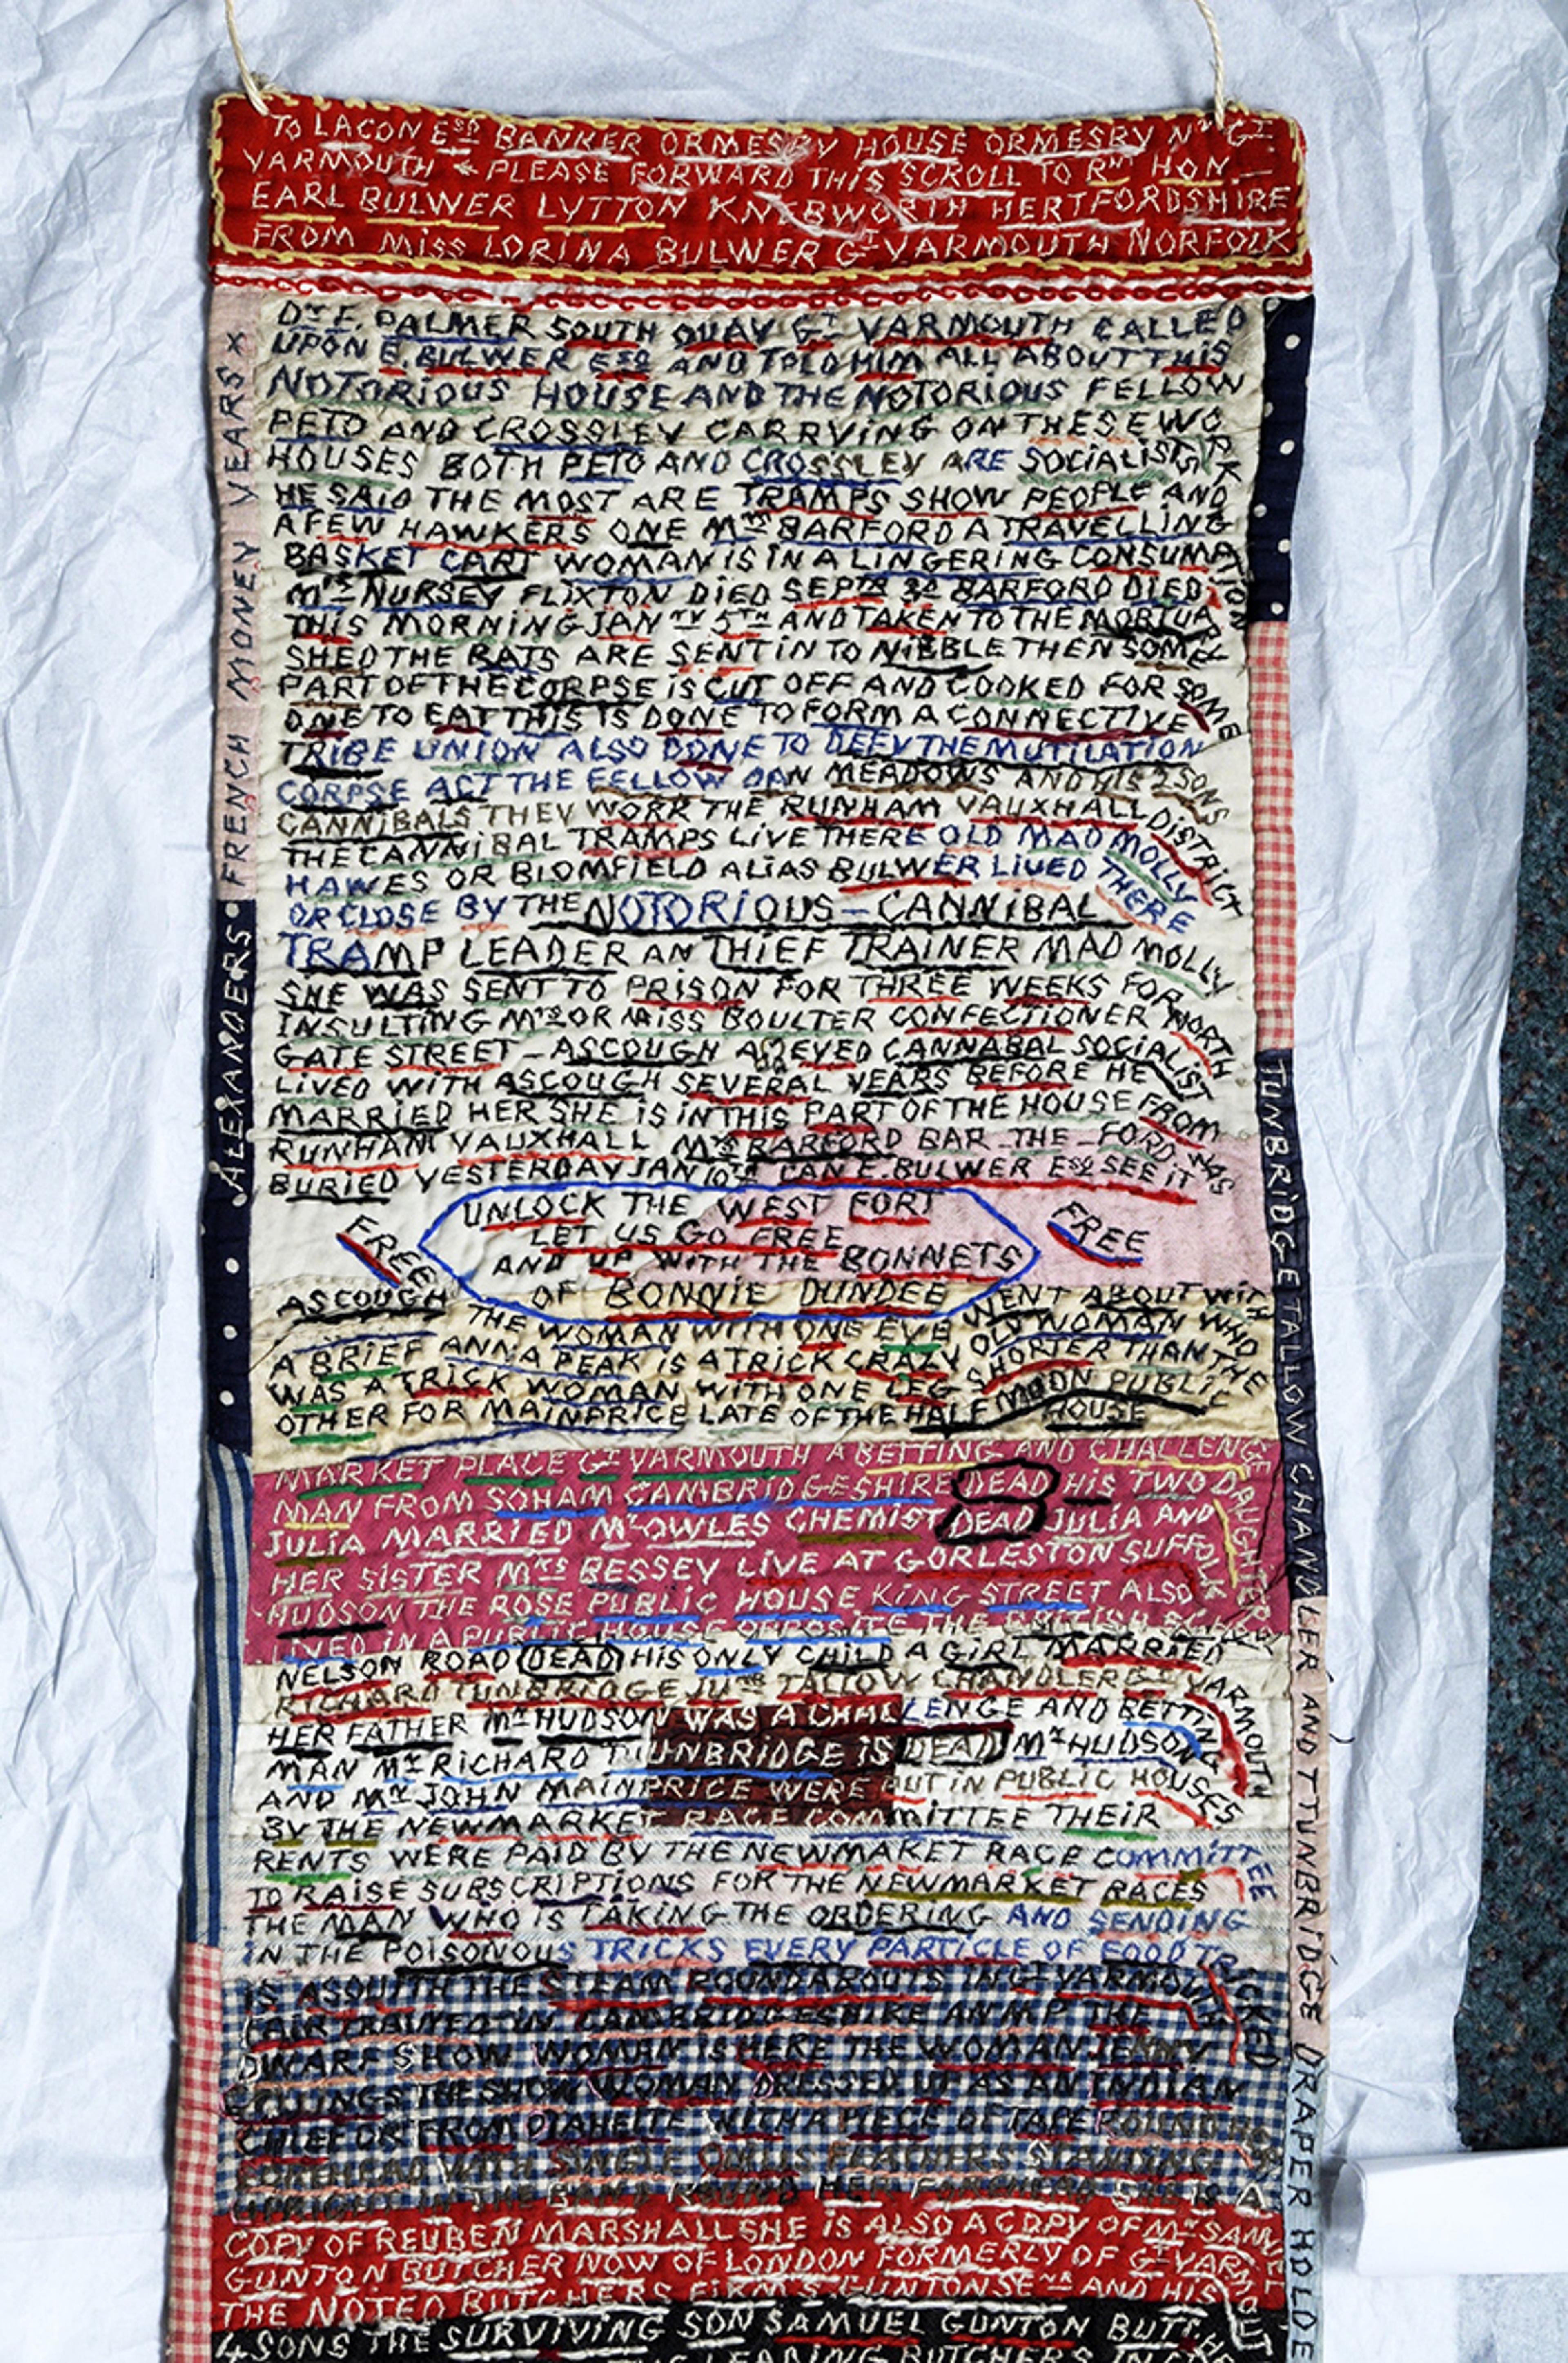 TO LACON ESQ BANKER ORMESBY HOUSE ORMESBY NR GT
YARMOUTH PLEASE FORWARD THIS SCROLL TO RHT HON
EARL BULWER LYTTON KNEBWORTH HERTFORDSHIRE
FROM MISS LORINA BULWER GT YARMOUTH NORFOLK
DR F. PALMER SOUTH QUAY GT YARMOUTH CALLED
UPON E. BULWER ESQ AND TOLD HIM ALL ABOUT THIS
NOTORIOUS HOUSE AND THE NOTORIOUS FELLOW
PETO AND CROSSLEY CARRYING ON THESE WORK
HOUSES BOTH PETO AND CROSSLEY ARE SOCIALISTS
HE SAID THE MOST ARE TRAMPS SHOW PEOPLE AND
A FEW HAWKERS ONE MRS BARFORD A TRAVELLING
BASKET CART WOMAN IS IN A LINGERING CONSUMATION
MRS NURSEY FLIXTON DIED SEPTR 3D BARFORD DIED
THIS MORNING JANRY 5TH AND TAKEN TO THE MORTUARY
SHED THE RATS ARE SENT IN TO NIBBLE THEN SOME
PART OF THE CORPSE IS CUT OFF AND COOKED FOR SOME
ONE TO EAT THIS IS DONE TO FORM A CONNECTIVE
TRIBE UNION ALSO DONE TO DEFY THE MUTILATION
CORPSE ACT THE FELLOW DAN MEADOWS AND HIS 2 SONS
CANNIBALS THEY WORK THE RUNHAM VAUXHALL DISTRICT
THE CANNIBAL TRAMPS LIVE THERE OLD MAD MOLLY
HAWES OR BLOMFIELD ALIAS BULWER LIVED THERE
OR CLOSE BY THE NOTORIOUS – CANNIBAL
TRAMP LEADER AN THIEF TRAINER MAD MOLLY
SHE WAS SENT TO PRISON FOR THREE WEEKS FOR
INSULTING MRS OR MISS BOULTER CONFECTIONER NORTH
GATE STREET – ASCOUGH A EYED CANNABAL SOCIALIST
LIVED WITH ASCOUGH SEVERAL YEARS BEFORE HE
MARRIED HER SHE IS IN THIS PART OF THE HOUSE FROM
RUNHAM VAUXHALL MRS BARFORD BAR – THE – FORD WAS
BURIED YESTERDAY JAN 10TH CAN E. BULWER ESQ SEE IT
UNLOCK THE WEST FORT
LET US GO FREE
AND UP WITH THE BONNETS
OF BONNIE DUNDEE
FREE
FREE
ASCOUGH THE WOMAN WITH ONE EYE WENT ABOUT WITH
A BRIEF ANNA PEAK IS A TRICK CRAZY OLD WOMAN WHO
WAS A TRICK WOMAN WITH ONE LEG SHORTER THAN THE
OTHER FOR MAINPRICE LATE OF THE HALF MOON PUBLIC
HOUSE
MARKET PLACE GT YARMOUTH A BETTING AND CHALLENGE
MAN FROM SOHAM CAMBRIDGESHIRE DEAD HIS TWO DAUGHTERS
JULIA MARRIED MR OWLES CHEMIST DEAD JULIA AND
HER SISTER MRS BESSEY LIVE AT GORLESTON SUFFOLK
HUDSON THE ROSE PUBLIC HOUSE KING STREET ALSO
LIVED IN A PUBLIC HOUSE OPPOSITE THE BRITISH
NELSON ROAD DEAD HIS ONLY CHILD A GIRL MARRIED
RICHARD TUNBRIDGE JUNR TALLOW CHANDLER GT YARMOUTH
HER FATHER MR HUDSON WAS A CHALLENGE AND BETTING
MAN MR RICHARD TUNBRIDGE IS DEAD MR HUDSON
AND MR JOHN MAINPRICE WERE PUT IN PUBLIC HOUSES
BY THE NEWMARKET RACE COMMITTEE THEIR
RENTS WERE PAID BY THE NEWMARKET RACE COMMITTEE
TO RAISE SUBSCRIPTIONS FOR THE NEWMARKET RACES
THE MAN WHO IS TAKING THE ORDERING AND SENDING
IN THE POISONOUS TRICKS EVERY PARTICLE OF FOOD TRICKED
IS ASQUITH THE STEAM ROUNDABOUTS IN GT YARMOUTH
FAIR TRAINED IN CAMBRIDGESHIRE AN MP THE
DWARF SHOW WOMAN IS HERE THE WOMAN JENNY
THE SHOW WOMAN DRESSED UP AS AN INDIAN
CHIEF OR FROM OTAHEITE WITH A PIECE OF TAPE ROUND HER
FOREHEAD WITH SINGLE QUILLS FEATHERS STANDING
UPRIGHT IN THE BAND ROUND HER FOREHEAD SHE IS A
COPY OF REUBEN MARSHALL SHE IS ALSO A COPY OF MR SAMUEL
GUNTON BUTCHER NOW OF LONDON FORMERLY OF GT YARMOUTH
THE NOTED BUTCHERS FIRMS GUNTON SENR AND HIS
4 SONS THE SURVIVING SON SAMUEL GUNTON BUTCHER
LEADING BUTCHERS IN
ALEXANDERS FRENCH MONEY YEARS X
TUNBRIDGE TALLOW CHANDLER AND TTUNBRIDGE DRAPER HOLDE